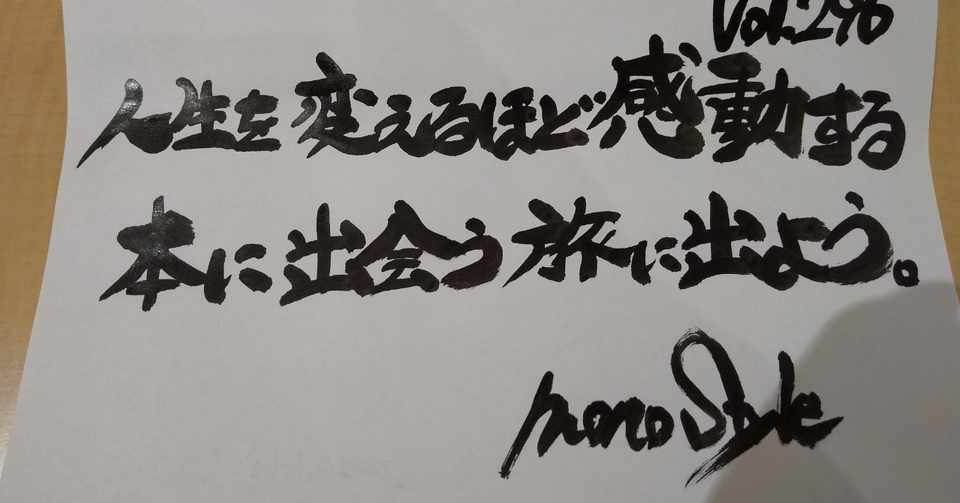 Vol.296
人生を変えるほど感動する
本に出会う旅に出よう。
mono Style